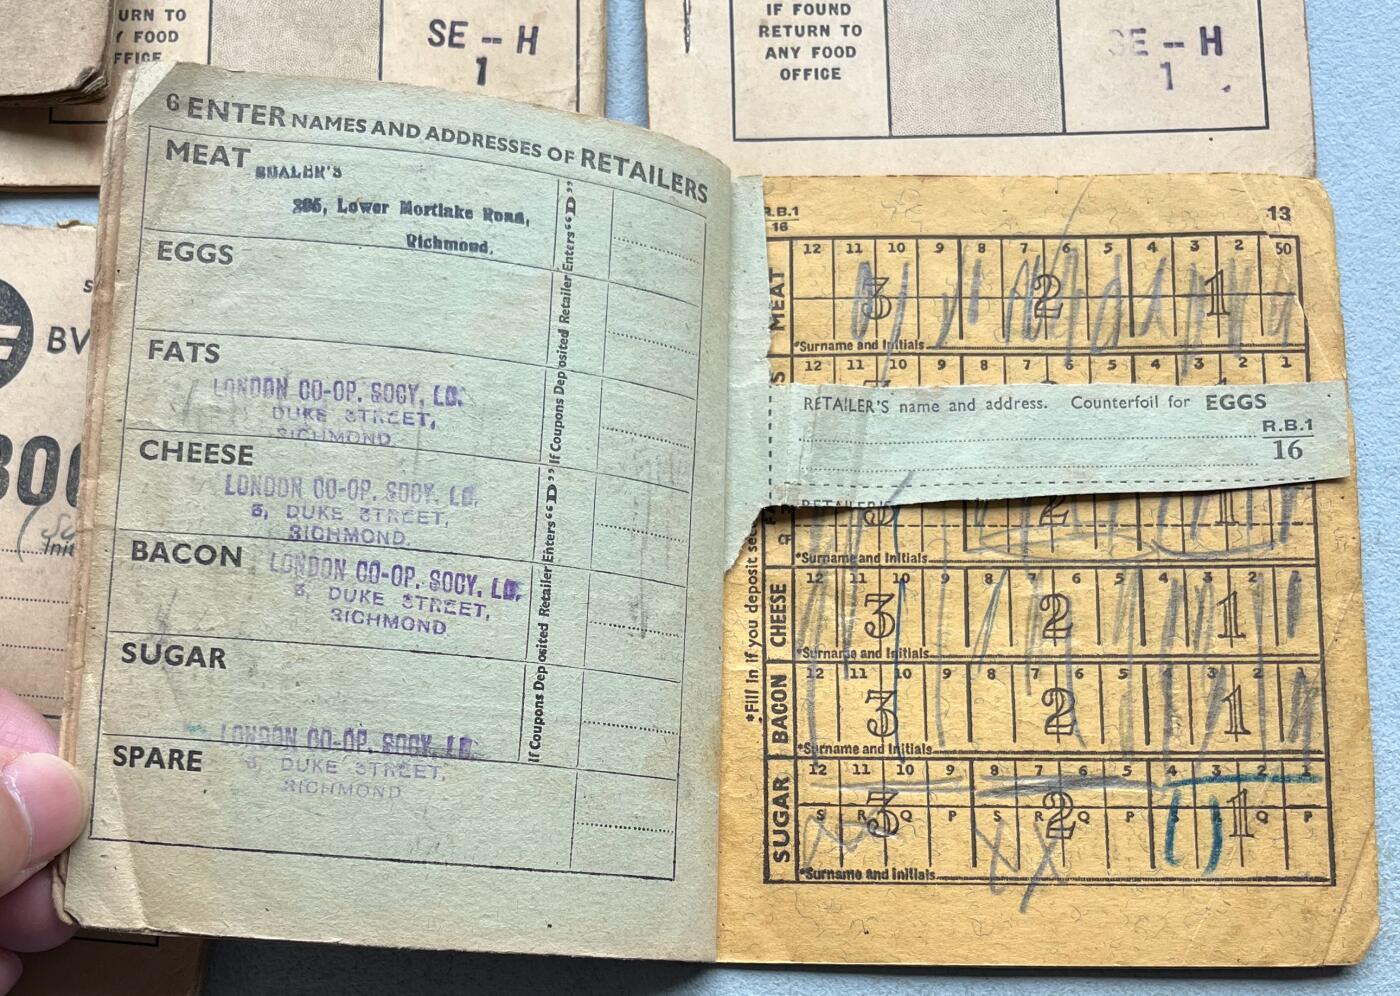 URN TO
Y FOOD
FFICE
SE – H
1
IF FOUND
RETURN TO
ANY FOOD
OFFICE
SE – H
1
BV
6 ENTER NAMES AND ADDRESSES OF RETAILERS
MEAT
295, Lower Mortlake Road,
Richmond.
EGGS
FATS
LONDON CO-OP. SOCY, LD.
DUKE STREET,
RICHMOND
CHEESE
LONDON CO-OP. SOCY. LD.
5, DUKE STREET,
RICHMOND.
BACON
LONDON CO-OP. SOCY. LD.
5, DUKE STREET,
RICHMOND
SUGAR
LONDON CO-OP. SOCY. LD.
5, DUKE STREET,
RICHMOND
SPARE
If Coupons Deposited Retailer Enters "D"
If Coupons Deposited Retailer Enters "D"
R.B.1
16
13
MEAT
12 11 10 9 8 7 6 5 4 3 2 50
3 2 1
*Surname and Initials
12 11 10 9 8 7 6 5 4 3 2 1
RETAILER'S name and address. Counterfoil for EGGS
R.B.1
16
RETAILER'S
3 2 1
CF
*Surname and Initials
*Fill in if you deposit sec
CHEESE
12 11 10 9 8 7 6 5 4 3 2 1
3 2 1
*Surname and Initials
BACON
12 11 10 9 8 7 6 5 4 3 2 1
3 2 1
*Surname and Initials
SUGAR
12 11 10 9 8 7 6 5 4 3 2 1
3 2 1
S R Q P S R Q P S R Q P
*Surname and Initials